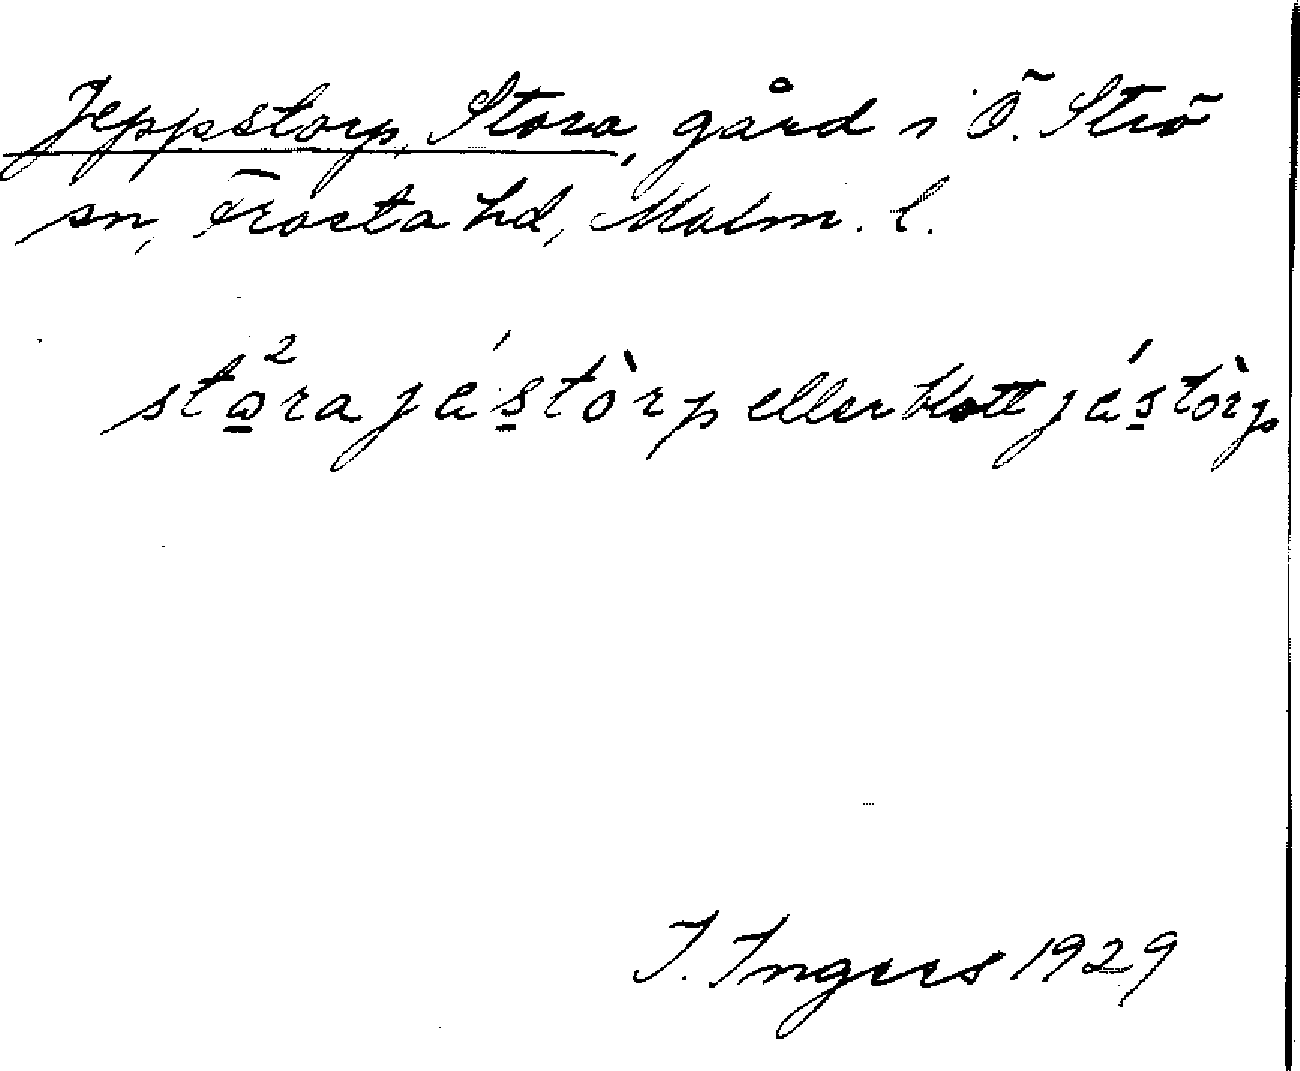 Jeppstorp, Stora, gård i Ö. Strö
sn, Frosta hd, Malm. l.
stω̱²ra jé's̱tòrp eller blott jés̱tòrp
I. Ingers 1929